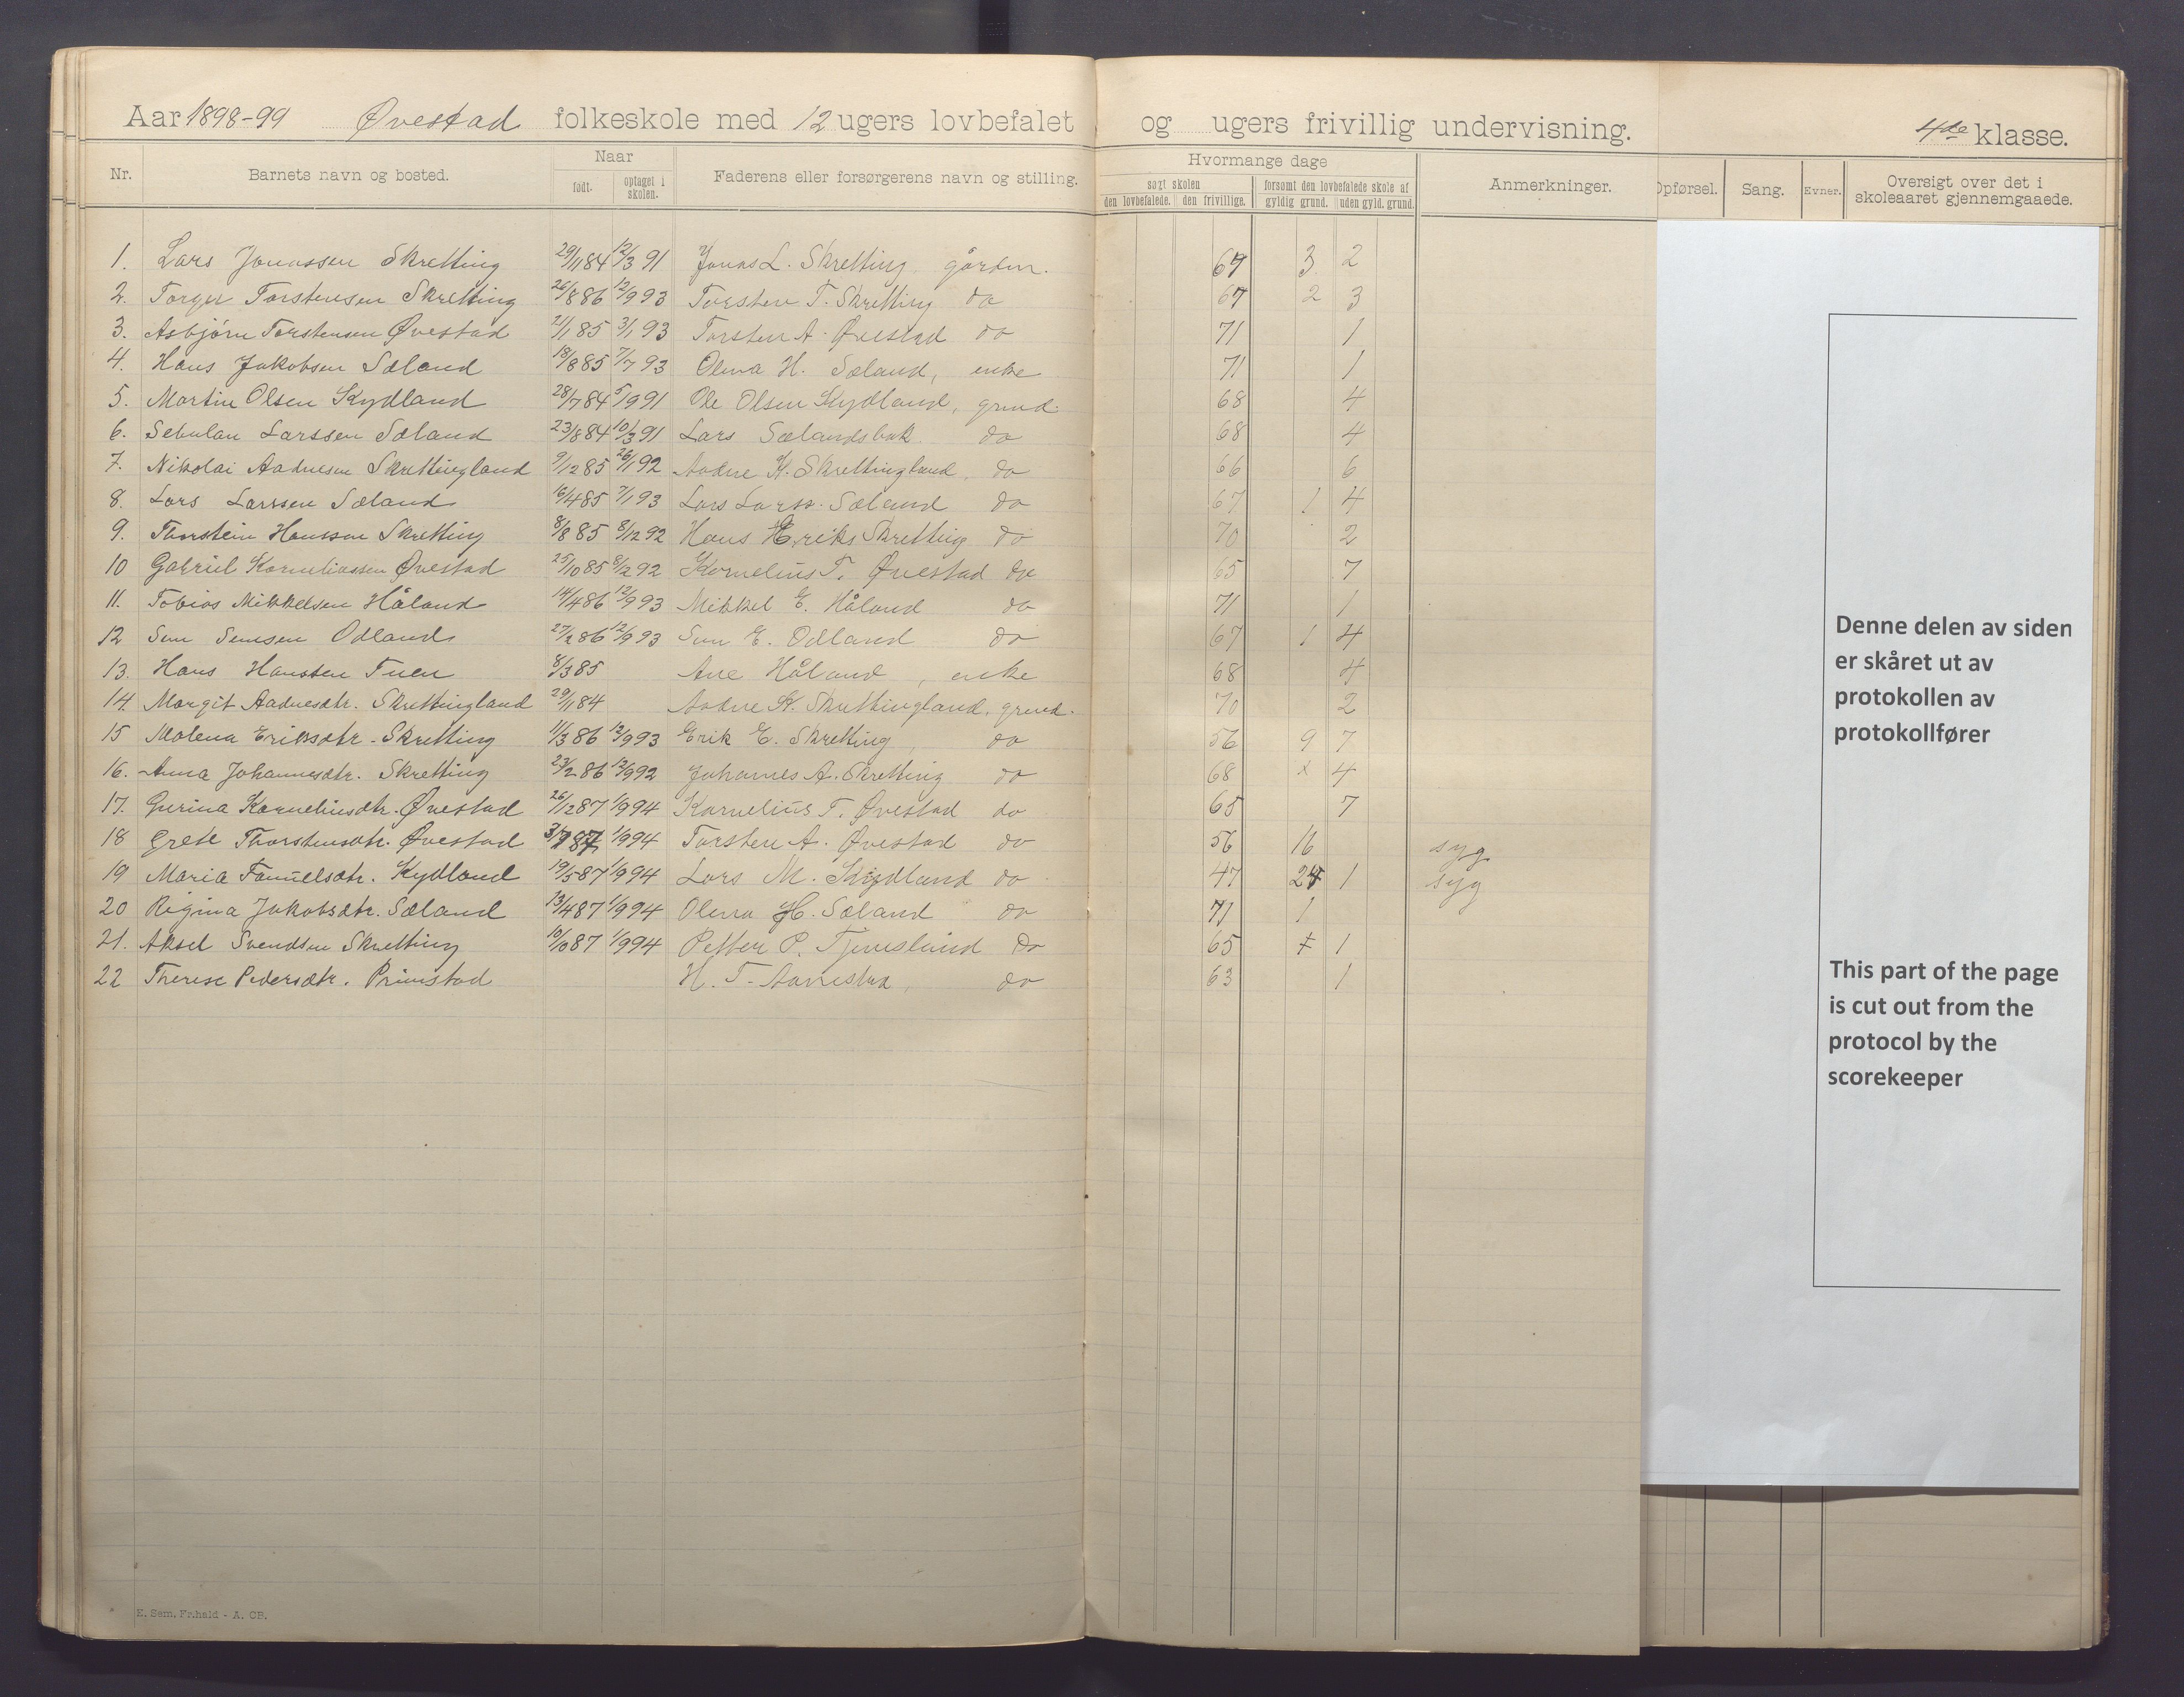 Aar 1898-99 Øvestad folkeskole med 12 ugers lovbefalet og ugers frivillig undervisning. 4de klasse.
Nr. Barnets navn og bosted. Naar født. optaget i skolen. Faderens eller forsørgerens navn og stilling. Hvormange dage søgt skolen den lovbefalede. den frivillige. forsømt den lovbefalede skole af gyldig grund. uden gyld. grund. Anmerkninger. Opførsel. Sang. Evner. Oversigt over det i skoleaaret gjennemgaaede.
1. Lars Jonassen Skretting 29/11 84 12/3 91 Jonas L. Skretting, gårdm. 67 3 2
2. Torger Torstensen Skretting 26/8 86 12/9 93 Torsten T. Skretting do 67 2 3
3. Asbjörn Torstensen Øvestad 21/1 85 3/1 93 Torsten A. Øvestad do 71 1
4. Hans Jakobsen Sæland 18/8 85 7/7 93 Olena H. Sæland, enke 71 1
5. Martin Olsen Kydland 28/7 84 5/9 91 Ole Olsen Kydland, grmd. 68 4
6. Sebulan Larssen Sæland 23/8 84 10/3 91 Lars Sælandsbak do 68 4
7. Nikolai Aadnesen Skrettingland 9/12 85 26/1 92 Aadne K. Skrettingland, do 66 6
8. Lars Larssen Sæland 16/4 85 7/1 93 Lars Larss. Sæland do 67 1 4
9. Thorstein Hanssen Skretting 8/8 85 8/12 92 Hans Eriks Skretting do 70 2
10 Gabriel Korneliussen Øvestad 25/10 85 8/12 92 Kornelius T. Øvestad do 65 7
11. Tobias Mikkelsen Håland 14/4 86 12/9 93 Mikkel E. Håland do 71 1
12 Sem Semsen Odland 27/2 86 12/9 93 Sem E. Odland do 67 1 4
13. Hans Hanssen Tuen 8/3 85 Ane Håland, enke 68 4
14 Margit Aadnesdtr. Skrettingland 29/1 84 Aadne K. Skrettingland, grmd. 70 2
15 Malena Eriksdtr. Skretting 11/3 86 12/9 93 Erik E. Skretting, do 56 9 7
16. Anna Johannesdtr. Skretting 23/2 86 12/9 92 Johannes A. Skretting do 68 4
17. Gurina Korneliusdtr. Øvestad 26/12 87 1/9 94 Kornelius T. Øvestad do 65 7
18 Grete Thorstensdtr. Øvestad 87 1/9 94 Torsten A. Øvestad do 56 16 syg
19 Maria Kydland 19/5 87 1/9 94 Lars M. Kydland do 47 1 syg
20 Regina Jakobsdtr. Sæland 13/4 87 1/9 94 Olena H. Sæland do 71 1
21. Aksel Svendsen Skretting 10/10 87 1/9 94 Petter P. do 65 1
22 Therese Pedersdtr. Primstad H. T. do 63 1
E. Sem, Fr.hald - A. CB.
Denne delen av siden
er skåret ut av
protokollen av
protokollfører
This part of the page
is cut out from the
protocol by the
scorekeeper